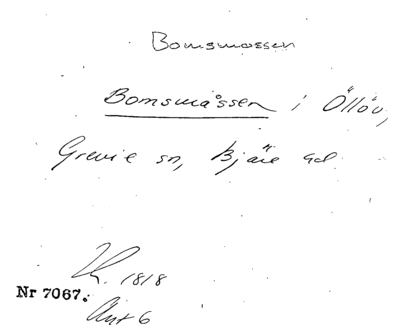 Bomsmossen
Bomsmåssen i Öllöv,
Grevie sn, Bjäre hd
1818
Nr 7067.
6